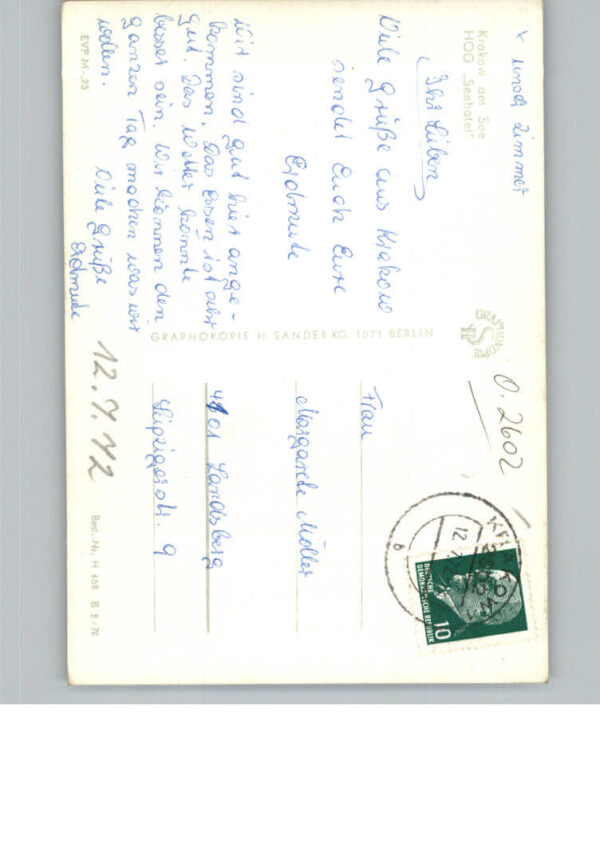 x unser Zimmer
Krakow am See
HOG „Seehotel“
Ihr Lieben
Viele Grüße aus Krakow
sendet Euch Eure
Erdmute
Wir sind gut hier ange-
kommen. Das Essen ist sehr
gut. Das Wetter könnte
besser sein. Wir können den
ganzen Tag machen was wir
wollen.
Viele Grüße
Erdmute
EVP M -,25
GRAPHOKOPIE H. SANDER KG. 1071 BERLIN
0. 2602
Frau
Margarete Möller
4101 Landsberg
Leipzigerstr. 9
12.7.72
Best.-Nr. H 468 B 8/71
DEUTSCHE
DEMOKRATISCHE REPUBLIK
10